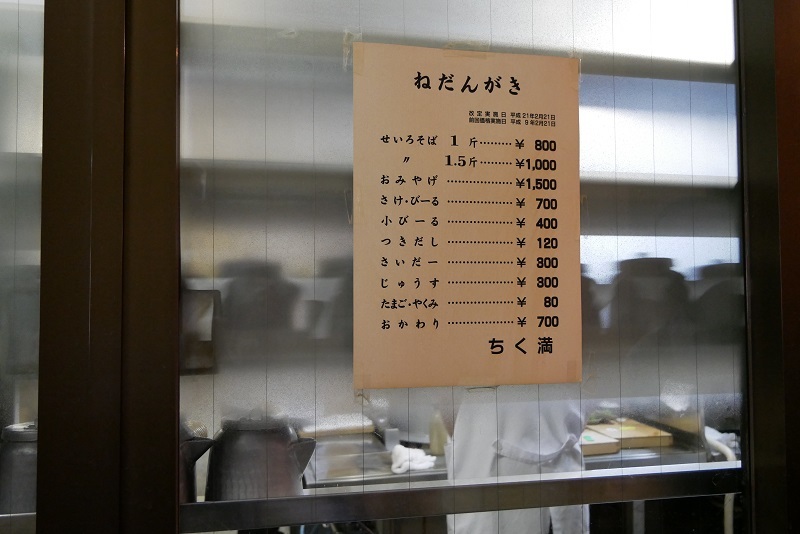 ねだんがき
改定実施日 平成21年2月21日
前回価格実施日 平成 9年2月21日
せいろそば 1斤………¥ 800
〃 1.5斤………¥1,000
おみやげ………………¥1,500
さけ・びーる…………¥ 700
小びーる………………¥ 400
つきだし………………¥ 120
さいだー………………¥ 300
じゅうす………………¥ 300
たまご・やくみ………¥ 80
おかわり………………¥ 700
ちく満